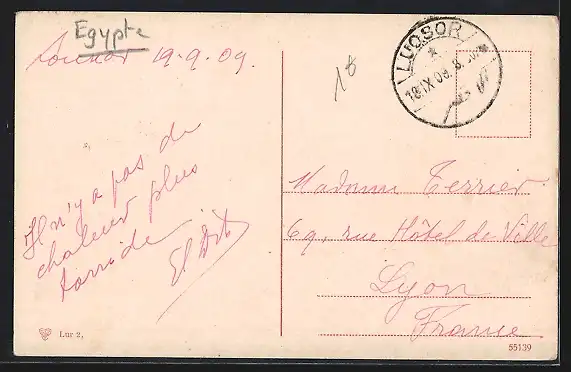 Egypte
Louxor 19-9-09.
18
LUQSOR
18 IX 09. 8
Il n'y a pas de
chaleur plus
torride
Madame Terrier
69, rue Hôtel de Ville
Lyon
France
Lur 2,
55139